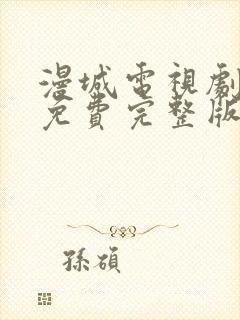 漫城電視劇
免費完整版
孫碩